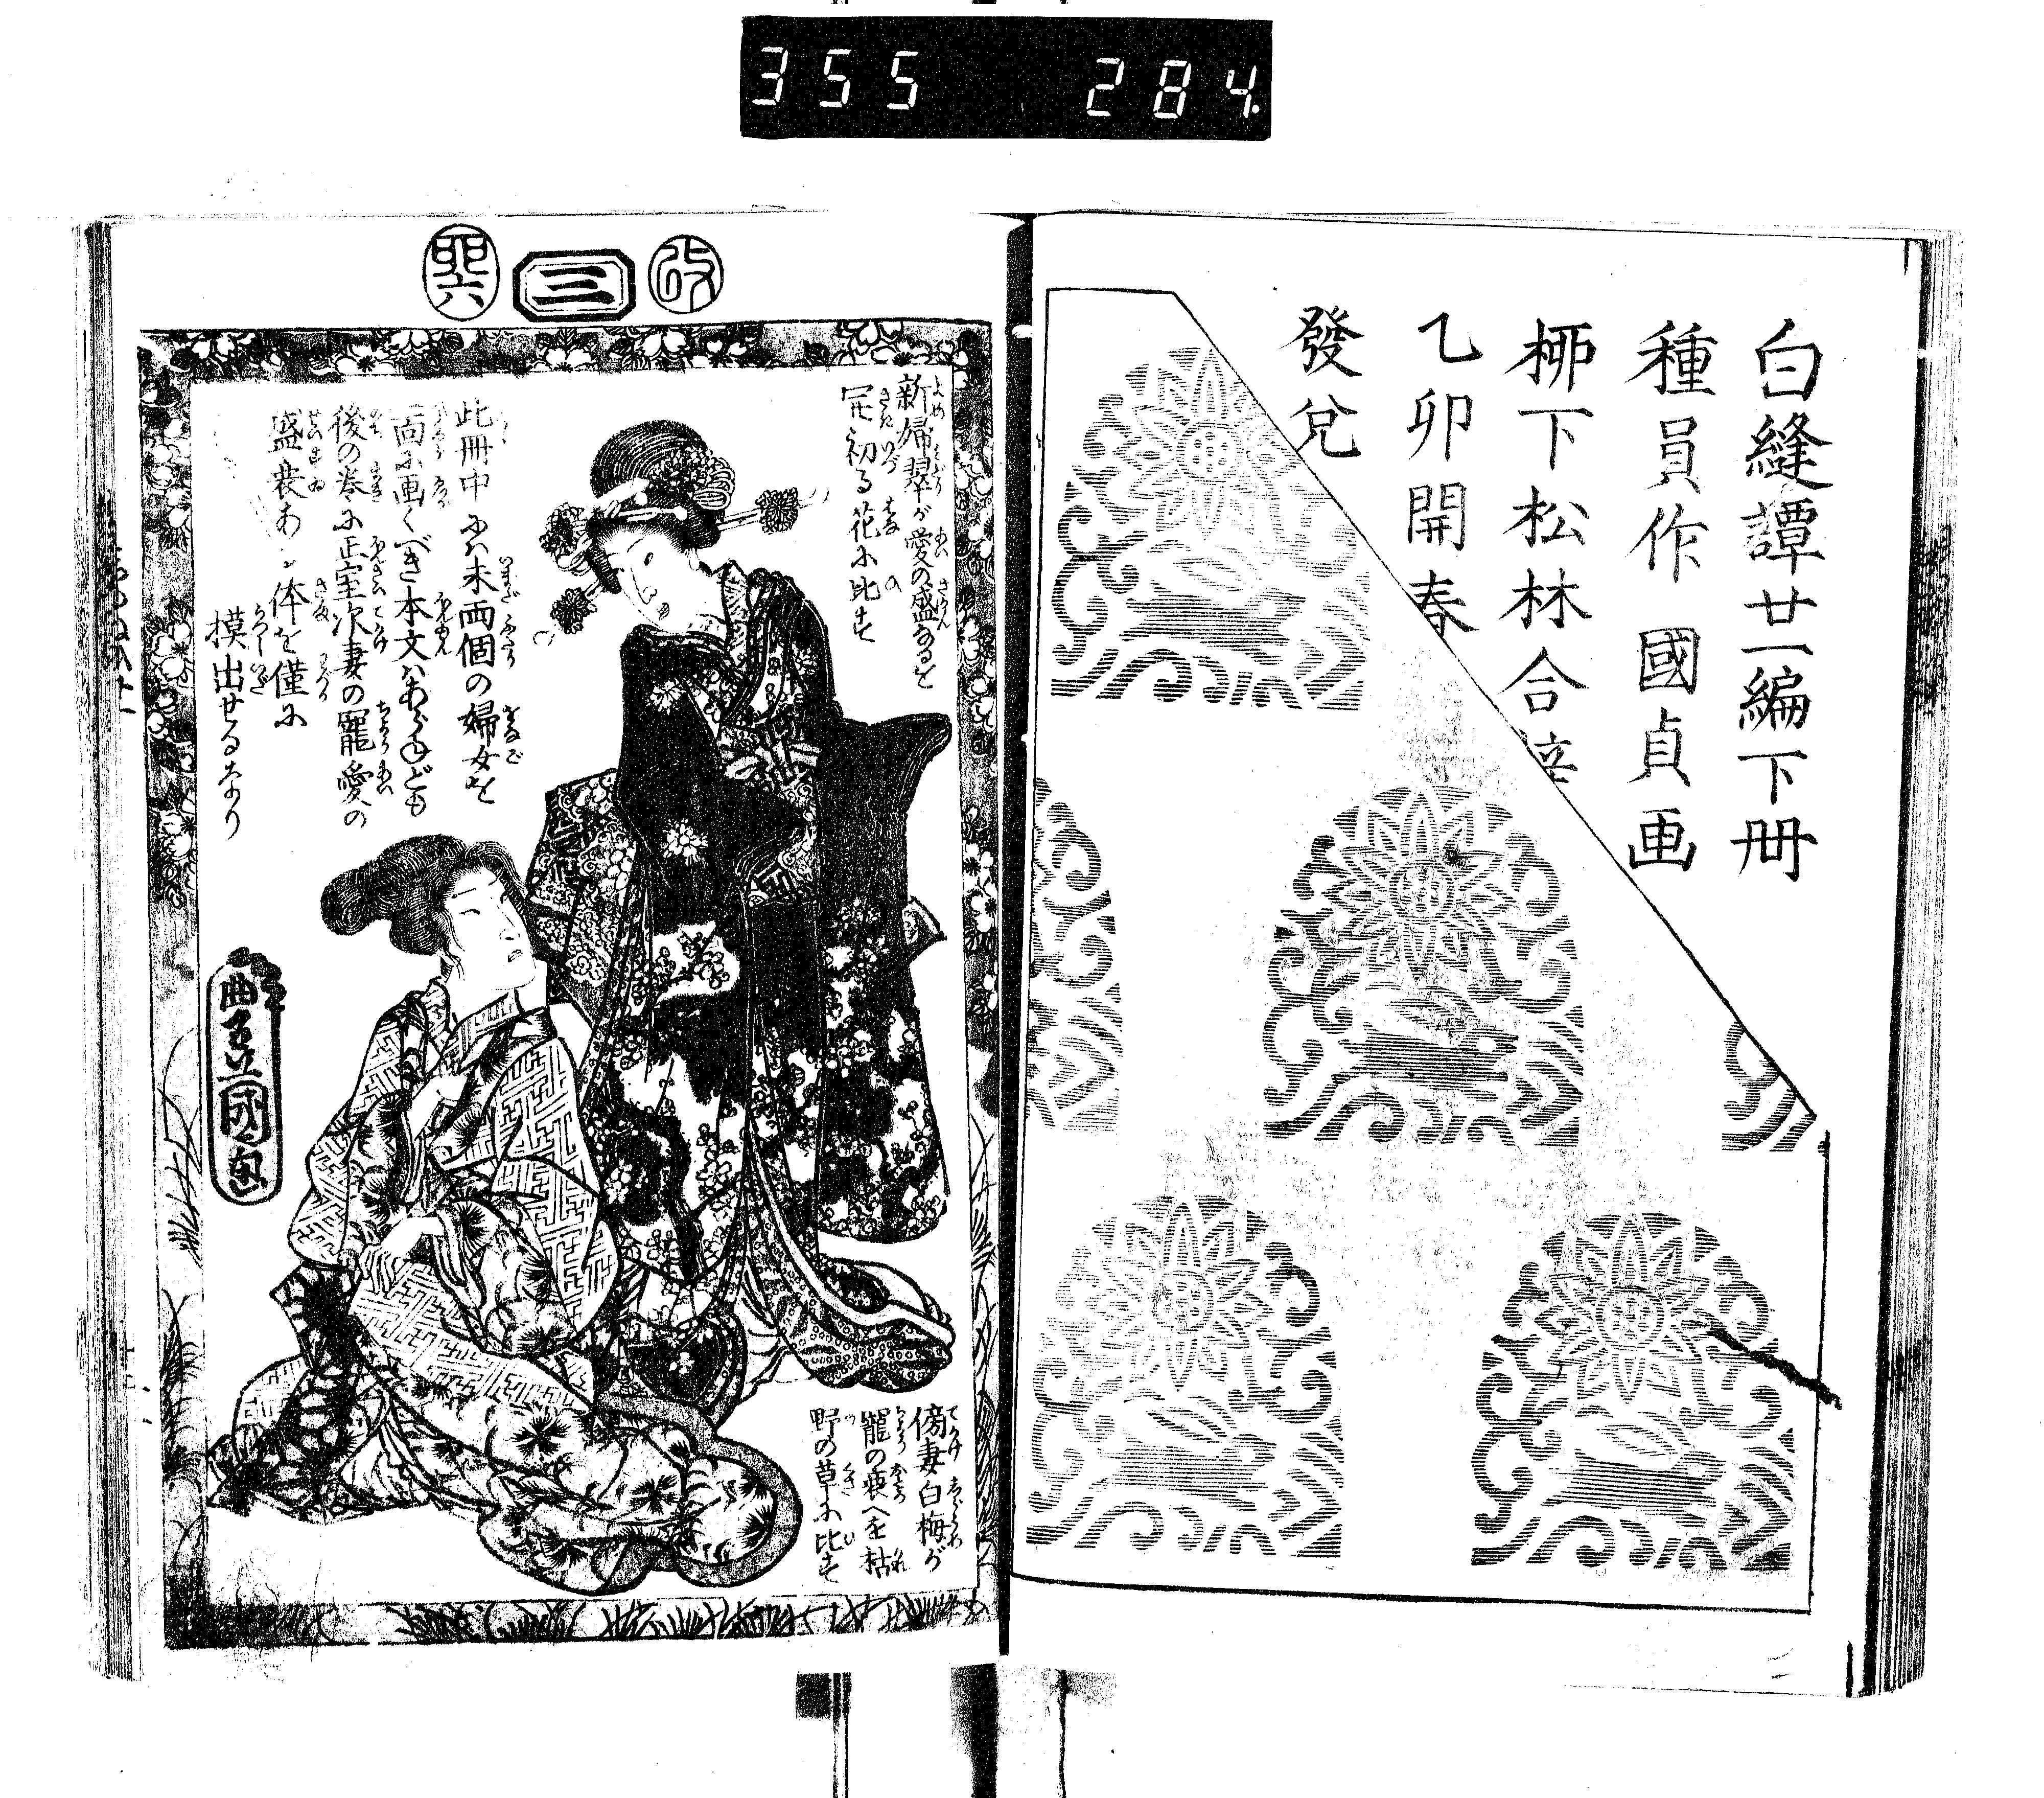 355 284
白縫譚廿一編下冊
種員作 國貞画
柳下松林合梓
乙卯開春
發兌
改
三
新婦翠が愛の盛なるを
咲初る花に比す
此冊中にハ未両個の婦女を
画に画くべき本文ハあらねども
後の巻に正室次妻の寵愛の
盛衰ある体を僅に
模出せるなり
傍妻白梅が
寵の衰へを枯
野の草に比す
豊国画